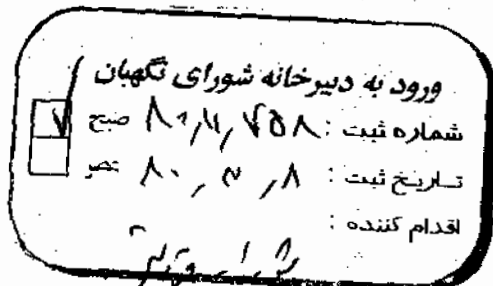 ورود به دبیرخانه شورای نگهبان
شماره ثبت : ۸۰/۲۱/۷۵۸ صبح
تاریخ ثبت : ۸۰/۳/۸ عصر
اقدام کننده :